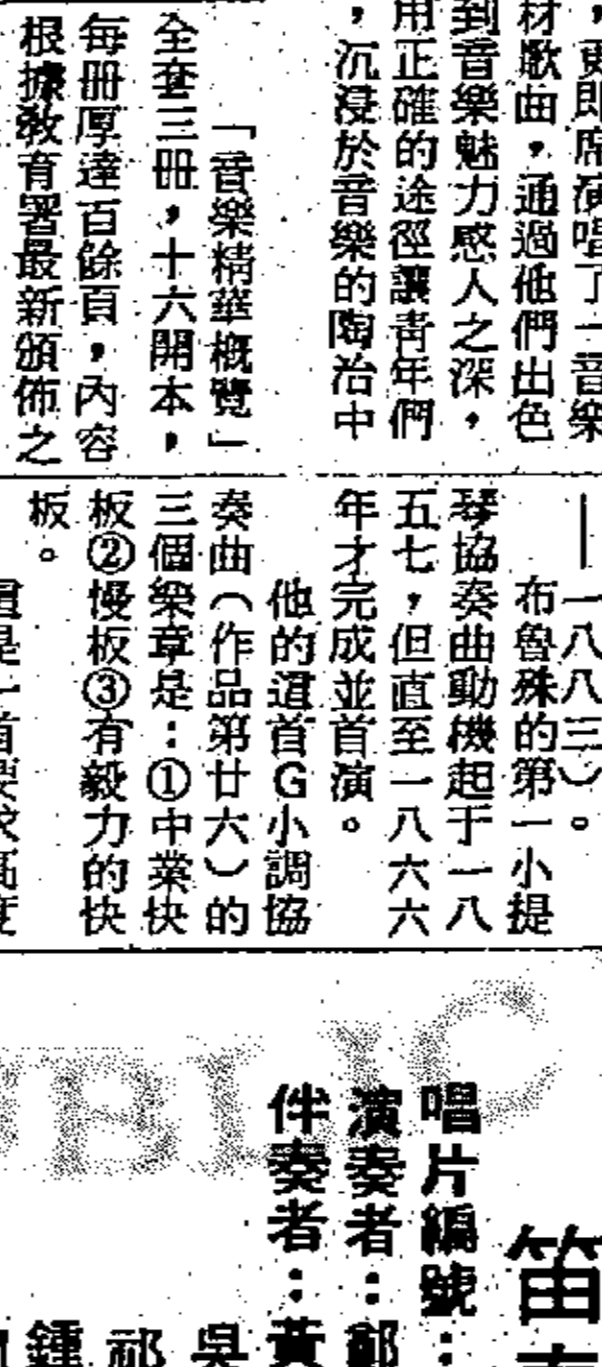 ，更即席演唱了一音樂
材歌曲，通過他們出色
到音樂魅力感人之深，
用正確的途徑讓青年們
，沉浸於音樂的陶冶中
「音樂精華概覽」
全套三冊，十六開本，
每冊厚達百餘頁，內容
根據教育署最新頒佈之
——一八八三）。
布魯殊的第一小提
琴協奏曲動機起于一八
五七，但直至一八六六
年才完成並首演。
他的這首G小調協
奏曲（作品第廿六）的
三個樂章是：①中業快
板②慢板③有毅力的快
板。
是一首要求高度
笛
唱片編號：
演奏者：鄭
伴奏者：黃
吳
祁
鍾
PUBLIC